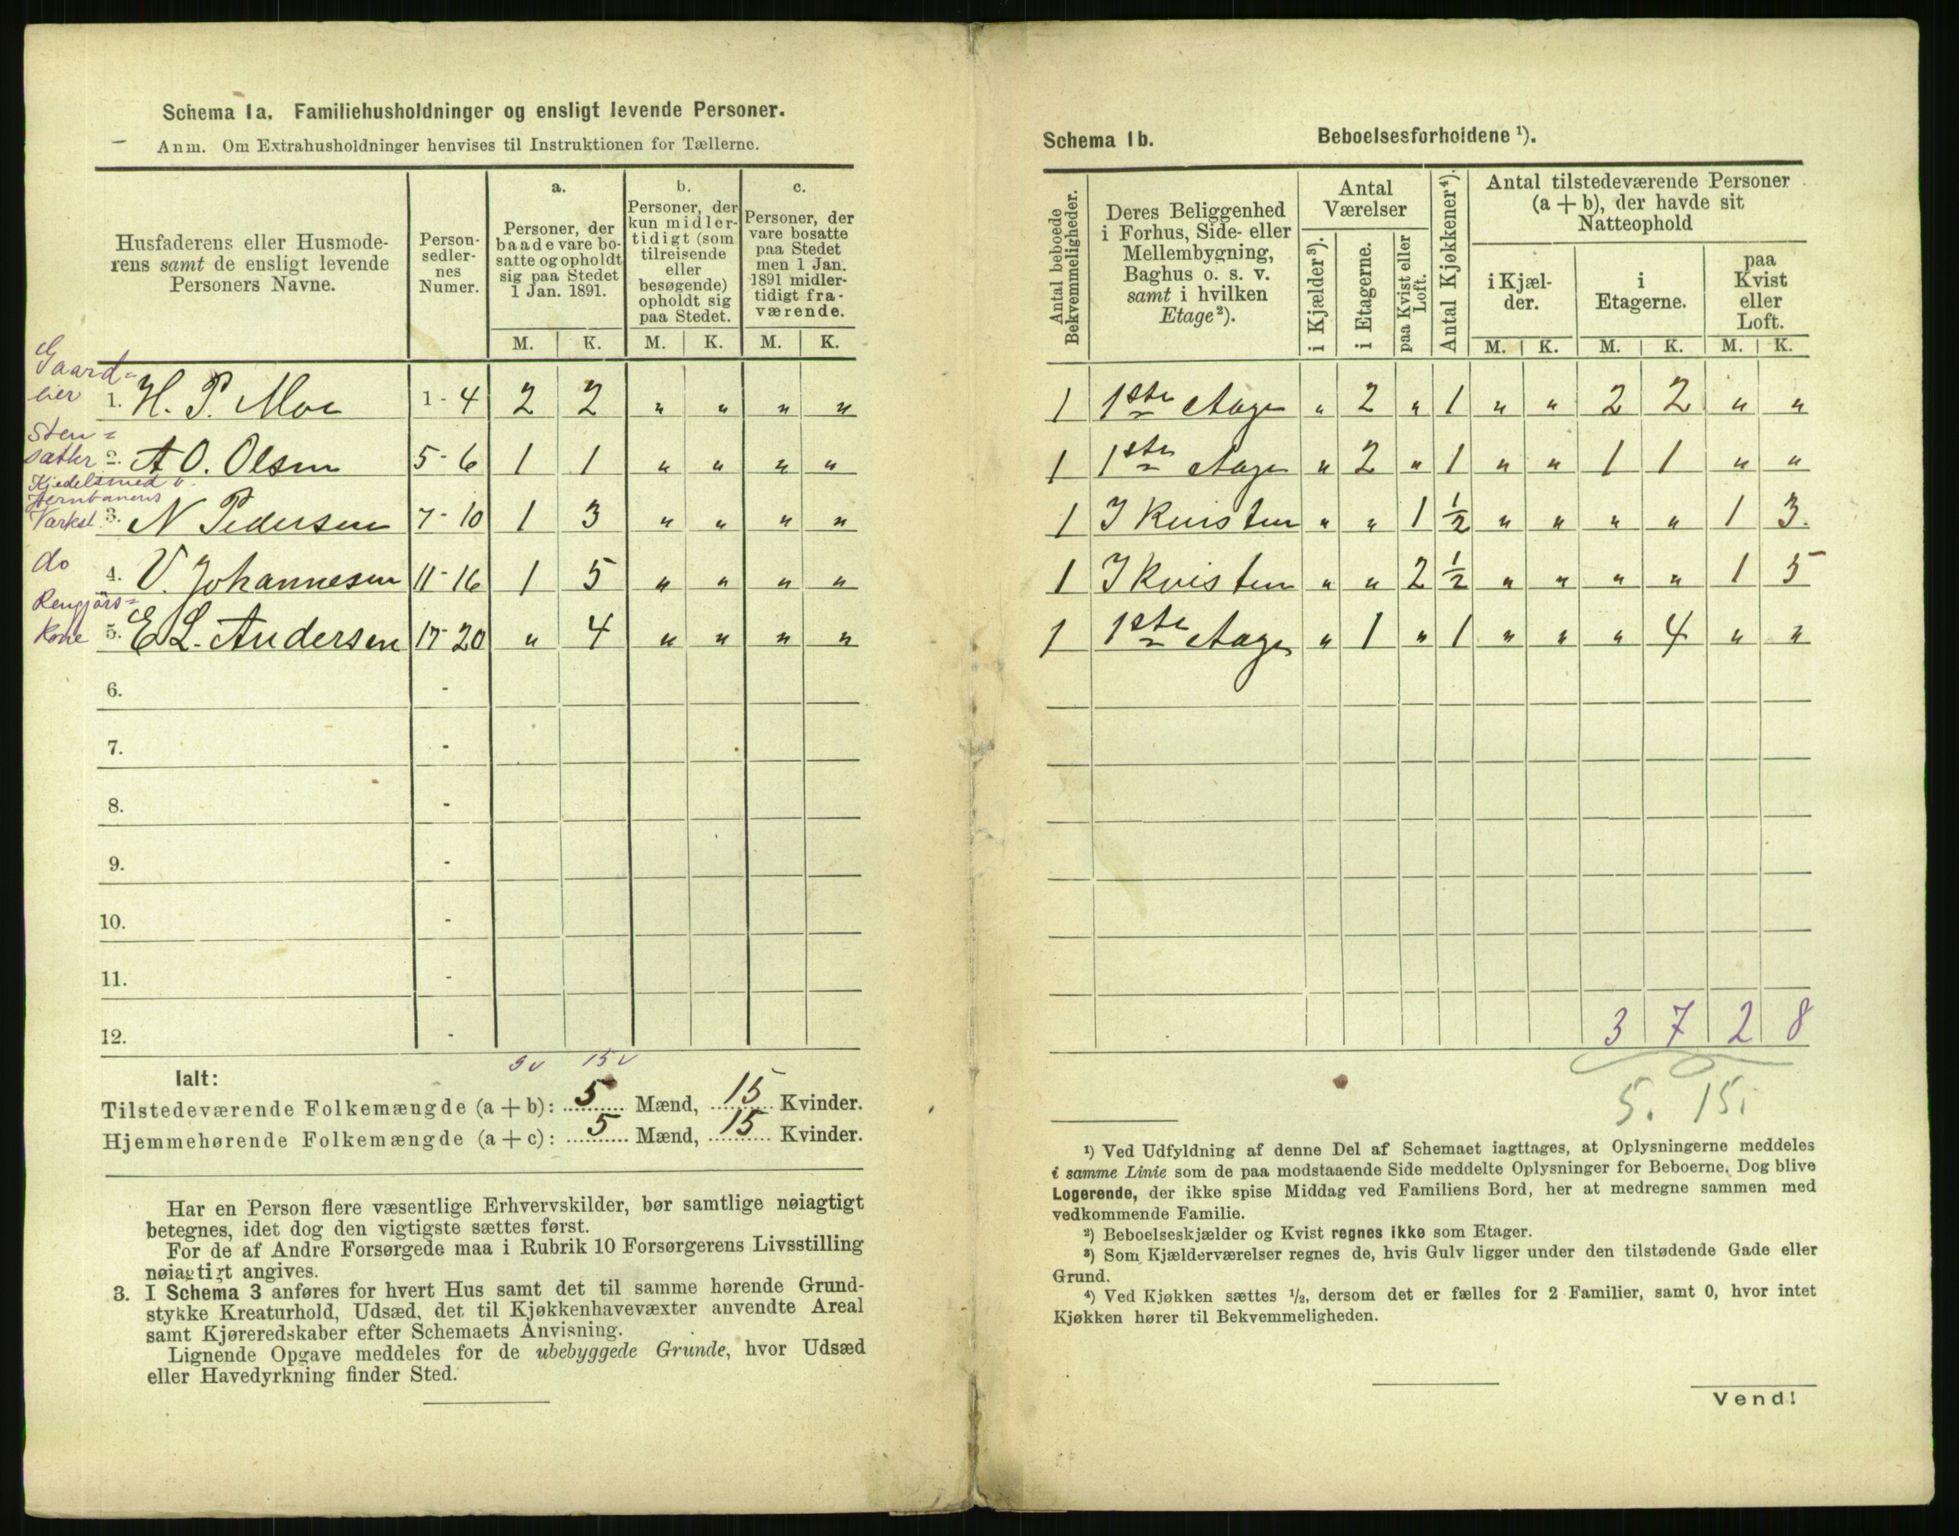 Schema 1a. Familiehusholdninger og ensligt levende Personer.
Anm. Om Extrahusholdninger henvises til Instruktionen for Tællerne.
Husfaderens eller Husmode-
rens samt de ensligt levende
Personers Navne.
Person-
sedler-
nes
Numer.
a.
Personer, der
baade vare bo-
satte og opholdt
sig paa Stedet
1 Jan. 1891.
b.
Personer, der
kun midler-
tidigt (som
tilreisende
eller
besøgende)
opholdt sig
paa Stedet.
c.
Personer, der
vare bosatte
paa Stedet
men 1 Jan.
1891 midler-
tidigt fra-
værende.
M. K. M. K. M. K.
Gaard-
eier 1. H. P. Moe 1-4 2 2 " " " "
Sten=
sætter 2. A O. Olsen 5-6 1 1 " " " "
Kjedelsmed v.
Jernbanens
Værkst. 3. N Pedersen 7-10 1 3 " " " "
do 4. V. Johannesen 11-16 1 5 " " " "
Rengjørs=
kone 5. E L. Andersen 17-20 " 4 " " " "
6. -
7. -
8. -
9. -
10. -
11. -
12. -
5 v 15 v
Ialt:
Tilstedeværende Folkemængde (a + b): 5 Mænd, 15 Kvinder.
Hjemmehørende Folkemængde (a + c): 5 Mænd, 15 Kvinder.
Har en Person flere væsentlige Erhvervskilder, bør samtlige nøiagtigt
betegnes, idet dog den vigtigste sættes først.
For de af Andre Forsørgede maa i Rubrik 10 Forsørgerens Livsstilling
nøiagtigt angives.
3. I Schema 3 anføres for hvert Hus samt det til samme hørende Grund-
stykke Kreaturhold, Udsæd, det til Kjøkkenhavevæxter anvendte Areal
samt Kjøreredskaber efter Schemaets Anvisning.
Lignende Opgave meddeles for de ubebyggede Grunde, hvor Udsæd
eller Havedyrkning finder Sted.
Schema 1b. Beboelsesforholdene ¹).
Antal beboede
Bekvemmeligheder.
Deres Beliggenhed
i Forhus, Side- eller
Mellembygning,
Baghus o. s. v.
samt i hvilken
Etage²).
Antal
Værelser
i Kjælder³).
i Etagerne.
paa Kvist eller
Loft.
Antal Kjøkkener⁴).
Antal tilstedeværende Personer
(a + b), der havde sit
Natteophold
i Kjæl-
der.
i
Etagerne.
paa
Kvist
eller
Loft.
M. K. M. K. M. K.
1 1ste Etage " 2 " 1 " " 2 2 " "
1 1ste Etage " 2 " 1 " " 1 1 " "
1 I Kvisten " " 1 ½ " " " " 1 3.
1 I Kvisten " " 2 ½ " " " " 1 5
1 1ste Etage " 1 " 1 " " " 4 " "
3 7 2 8
5. 15.
¹) Ved Udfyldning af denne Del af Schemaet iagttages, at Oplysningerne meddeles
i samme Linie som de paa modstaaende Side meddelte Oplysninger for Beboerne. Dog blive
Logerende, der ikke spise Middag ved Familiens Bord, her at medregne sammen med
vedkommende Familie.
²) Beboelseskjælder og Kvist regnes ikke som Etager.
³) Som Kjælderværelser regnes de, hvis Gulv ligger under den tilstødende Gade eller
Grund.
⁴) Ved Kjøkken sættes ¹/₂, dersom det er fælles for 2 Familier, samt 0, hvor intet
Kjøkken hører til Bekvemmeligheden.
Vend!